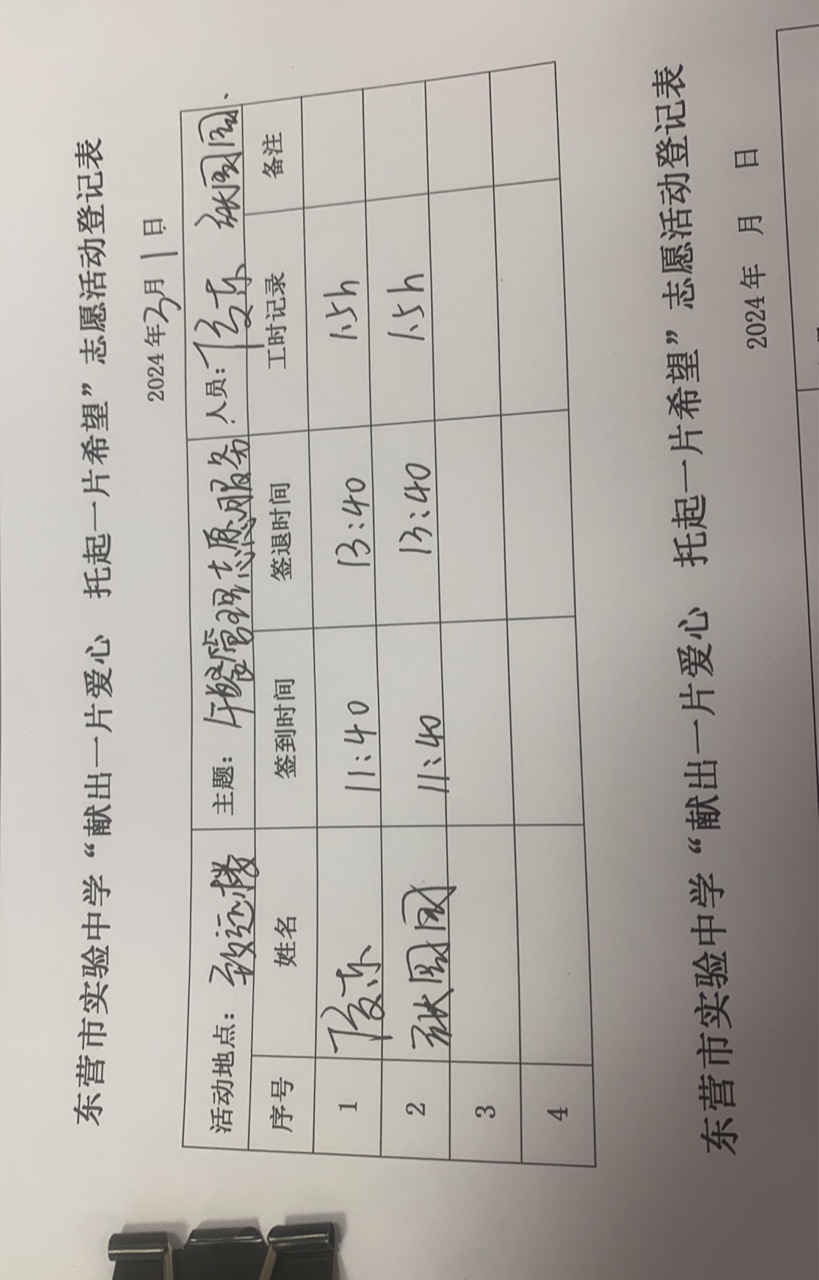 东营市实验中学“献出一片爱心 托起一片希望”志愿活动登记表
2024年3月1日
活动地点：致远楼 主题：午餐管理志愿服务 人员：
序号 姓名 签到时间 签退时间 工时记录 备注
1 11:40 13:40 1.5h
2 11:40 13:40 1.5h
3
4
东营市实验中学“献出一片爱心 托起一片希望”志愿活动登记表
2024年 月 日